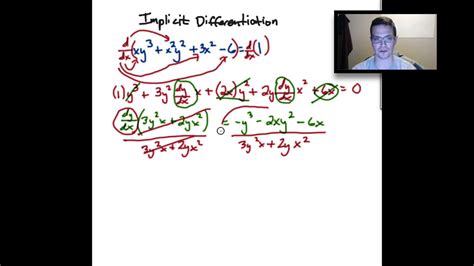 Implicit Differentiation
d/dx(xy³ + x²y² + 3x² - 6) = d/dx(1)
(1)y³ + 3y² dy/dx x + (2x)y² + 2y dy/dx x² + 6x = 0
dy/dx (3y²x + 2yx²) / 3y²x + 2yx² = -y³ - 2xy² - 6x / 3y²x + 2yx²